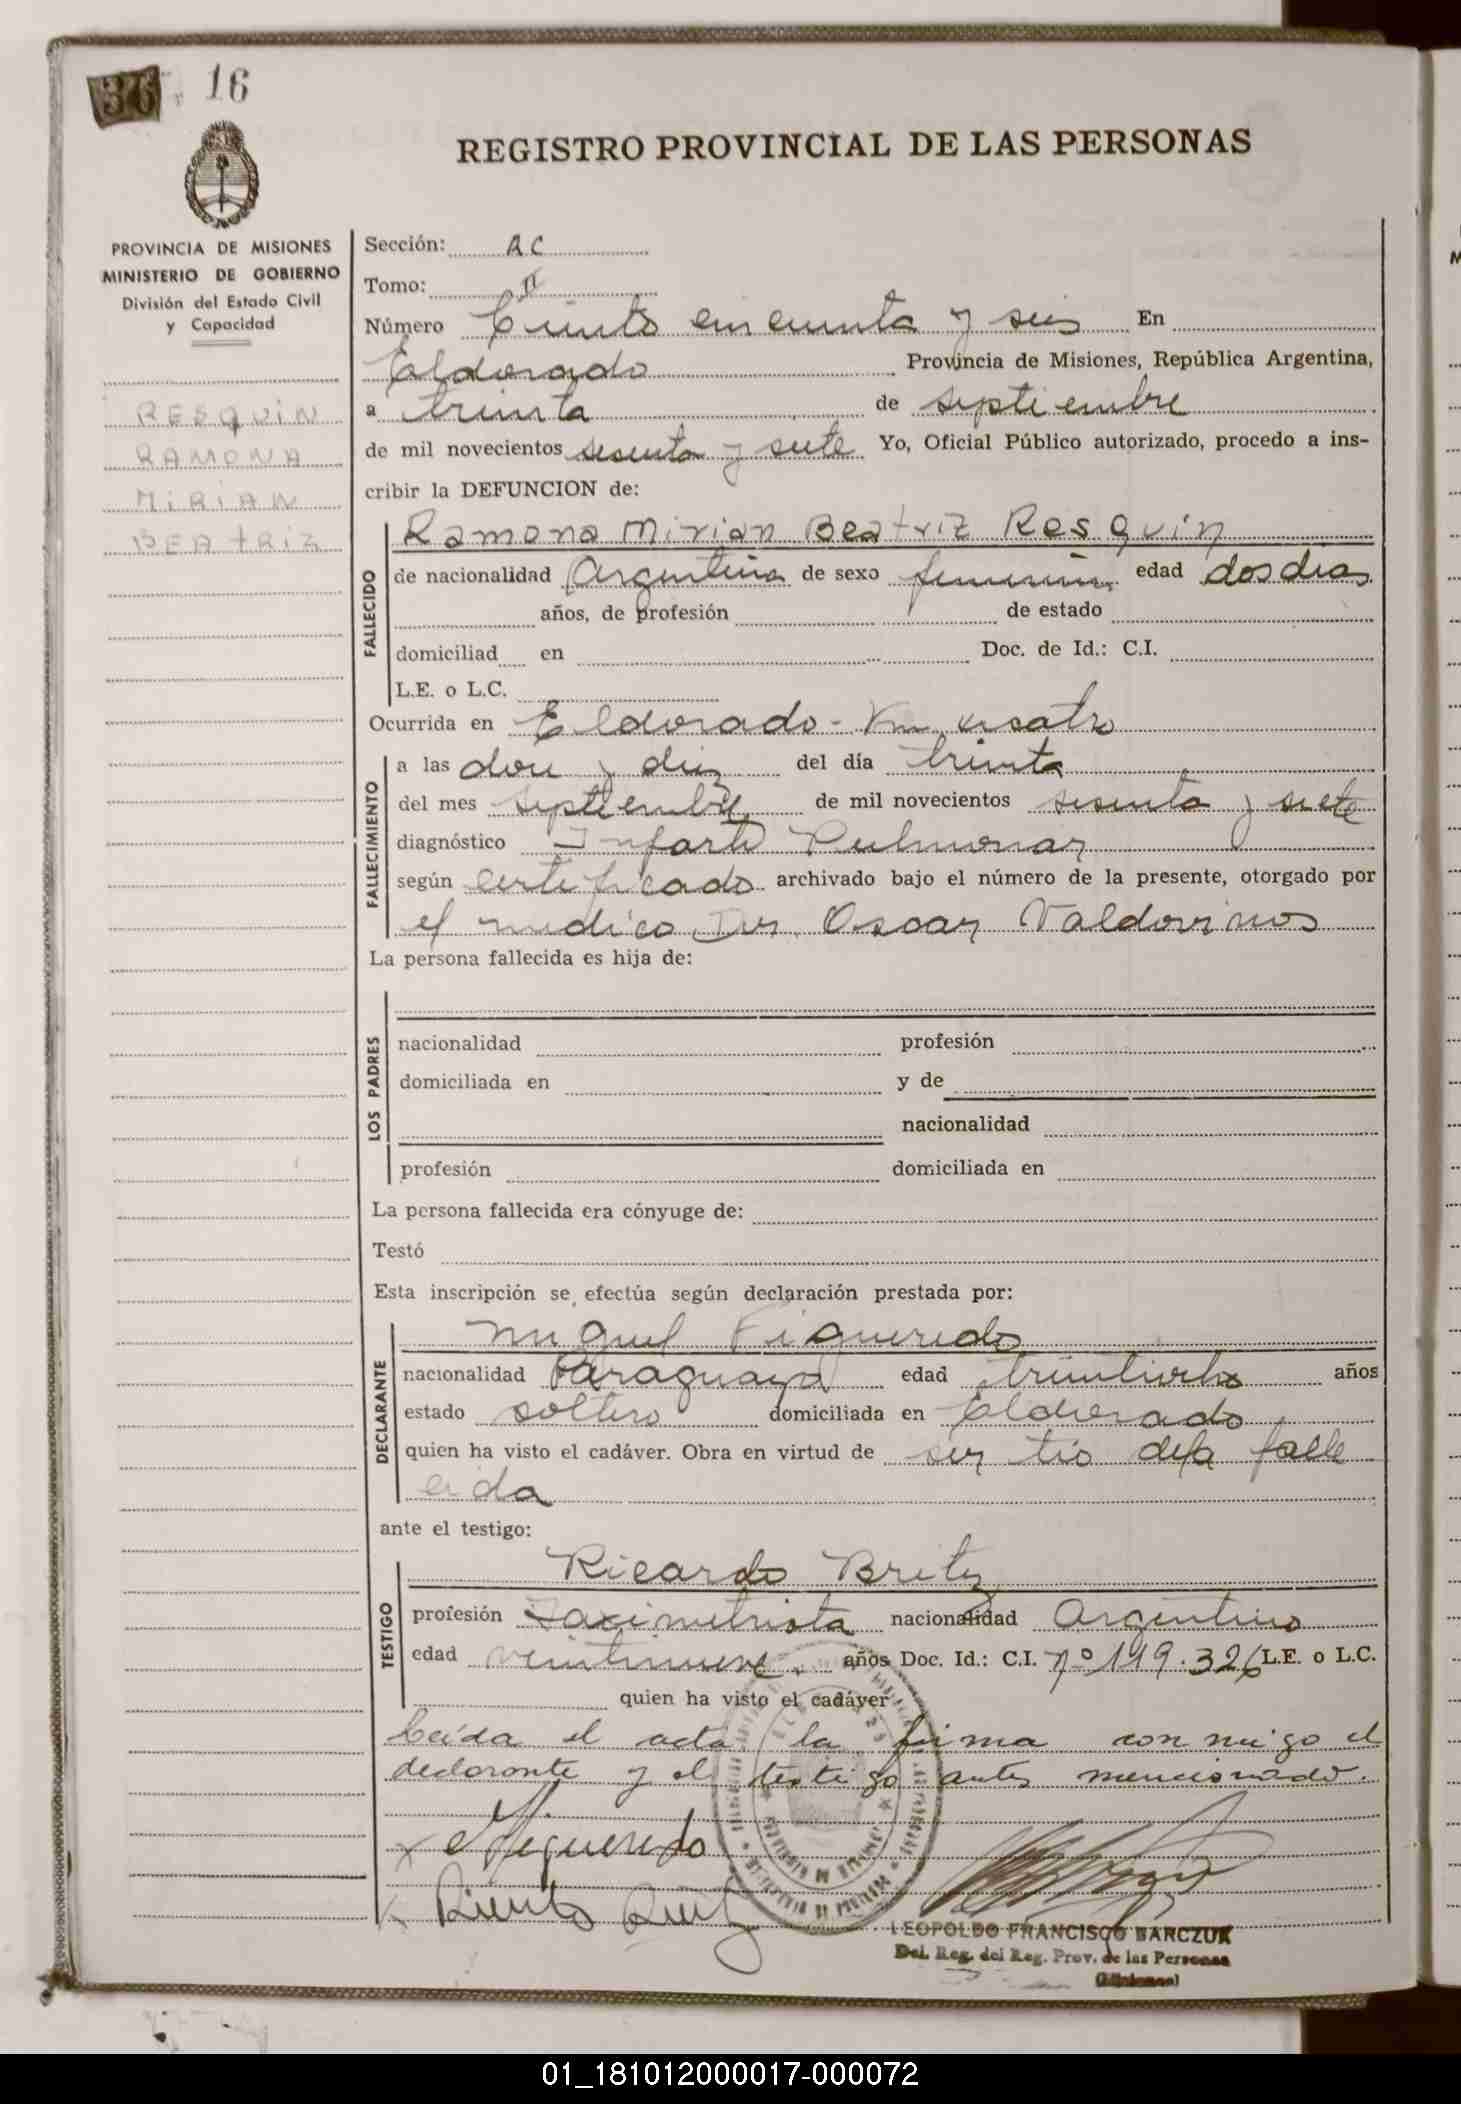 36 16
REGISTRO PROVINCIAL DE LAS PERSONAS
PROVINCIA DE MISIONES
MINISTERIO DE GOBIERNO
División del Estado Civil
y Capacidad
RESQUIN
RAMONA
MIRIAN
BEATRIZ
Sección: AC
Tomo: II
Número Ciento cincuenta y seis En
Eldorado Provincia de Misiones, República Argentina,
a treinta de septiembre
de mil novecientos sesenta y siete Yo, Oficial Público autorizado, procedo a ins-
cribir la DEFUNCION de:
FALLECIDO
Ramona Mirian Beatriz Resquín
de nacionalidad Argentina de sexo femenino edad dos días
años, de profesión de estado
domiciliad en Doc. de Id.: C.I.
L.E. o L.C.
Ocurrida en Eldorado - Km cuatro
FALLECIMIENTO
a las doce y diez del día treinta
del mes septiembre de mil novecientos sesenta y siete
diagnóstico Infarto Pulmonar
según certificado archivado bajo el número de la presente, otorgado por
el medico Dr. Oscar Valdovinos
La persona fallecida es hija de:
LOS PADRES
nacionalidad profesión
domiciliada en y de
nacionalidad
profesión domiciliada en
La persona fallecida era cónyuge de:
Testó
Esta inscripción se efectúa según declaración prestada por:
DECLARANTE
Miguel Figueredo
nacionalidad Paraguaya edad treintiocho años
estado soltero domiciliada en Eldorado
quien ha visto el cadáver. Obra en virtud de ser tío de la falle
cida
ante el testigo:
TESTIGO
Ricardo Britez
profesión Taximetrista nacionalidad Argentino
edad veintinueve años Doc. Id.: C.I. nº 119.326 L.E. o L.C.
quien ha visto el cadáver
Leída el acta, la firma conmigo el
declarante y el testigo antes mencionado.
x M Figueredo
x Ricardo Britez
LEOPOLDO FRANCISCO BARCZUK
Del. Reg. del Reg. Prov. de las Personas
(Misiones)
01_181012000017-000072